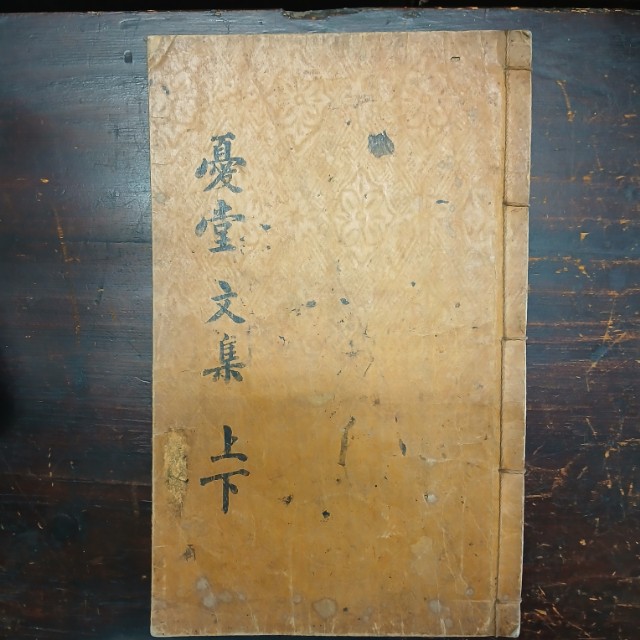 憂堂文集 上下